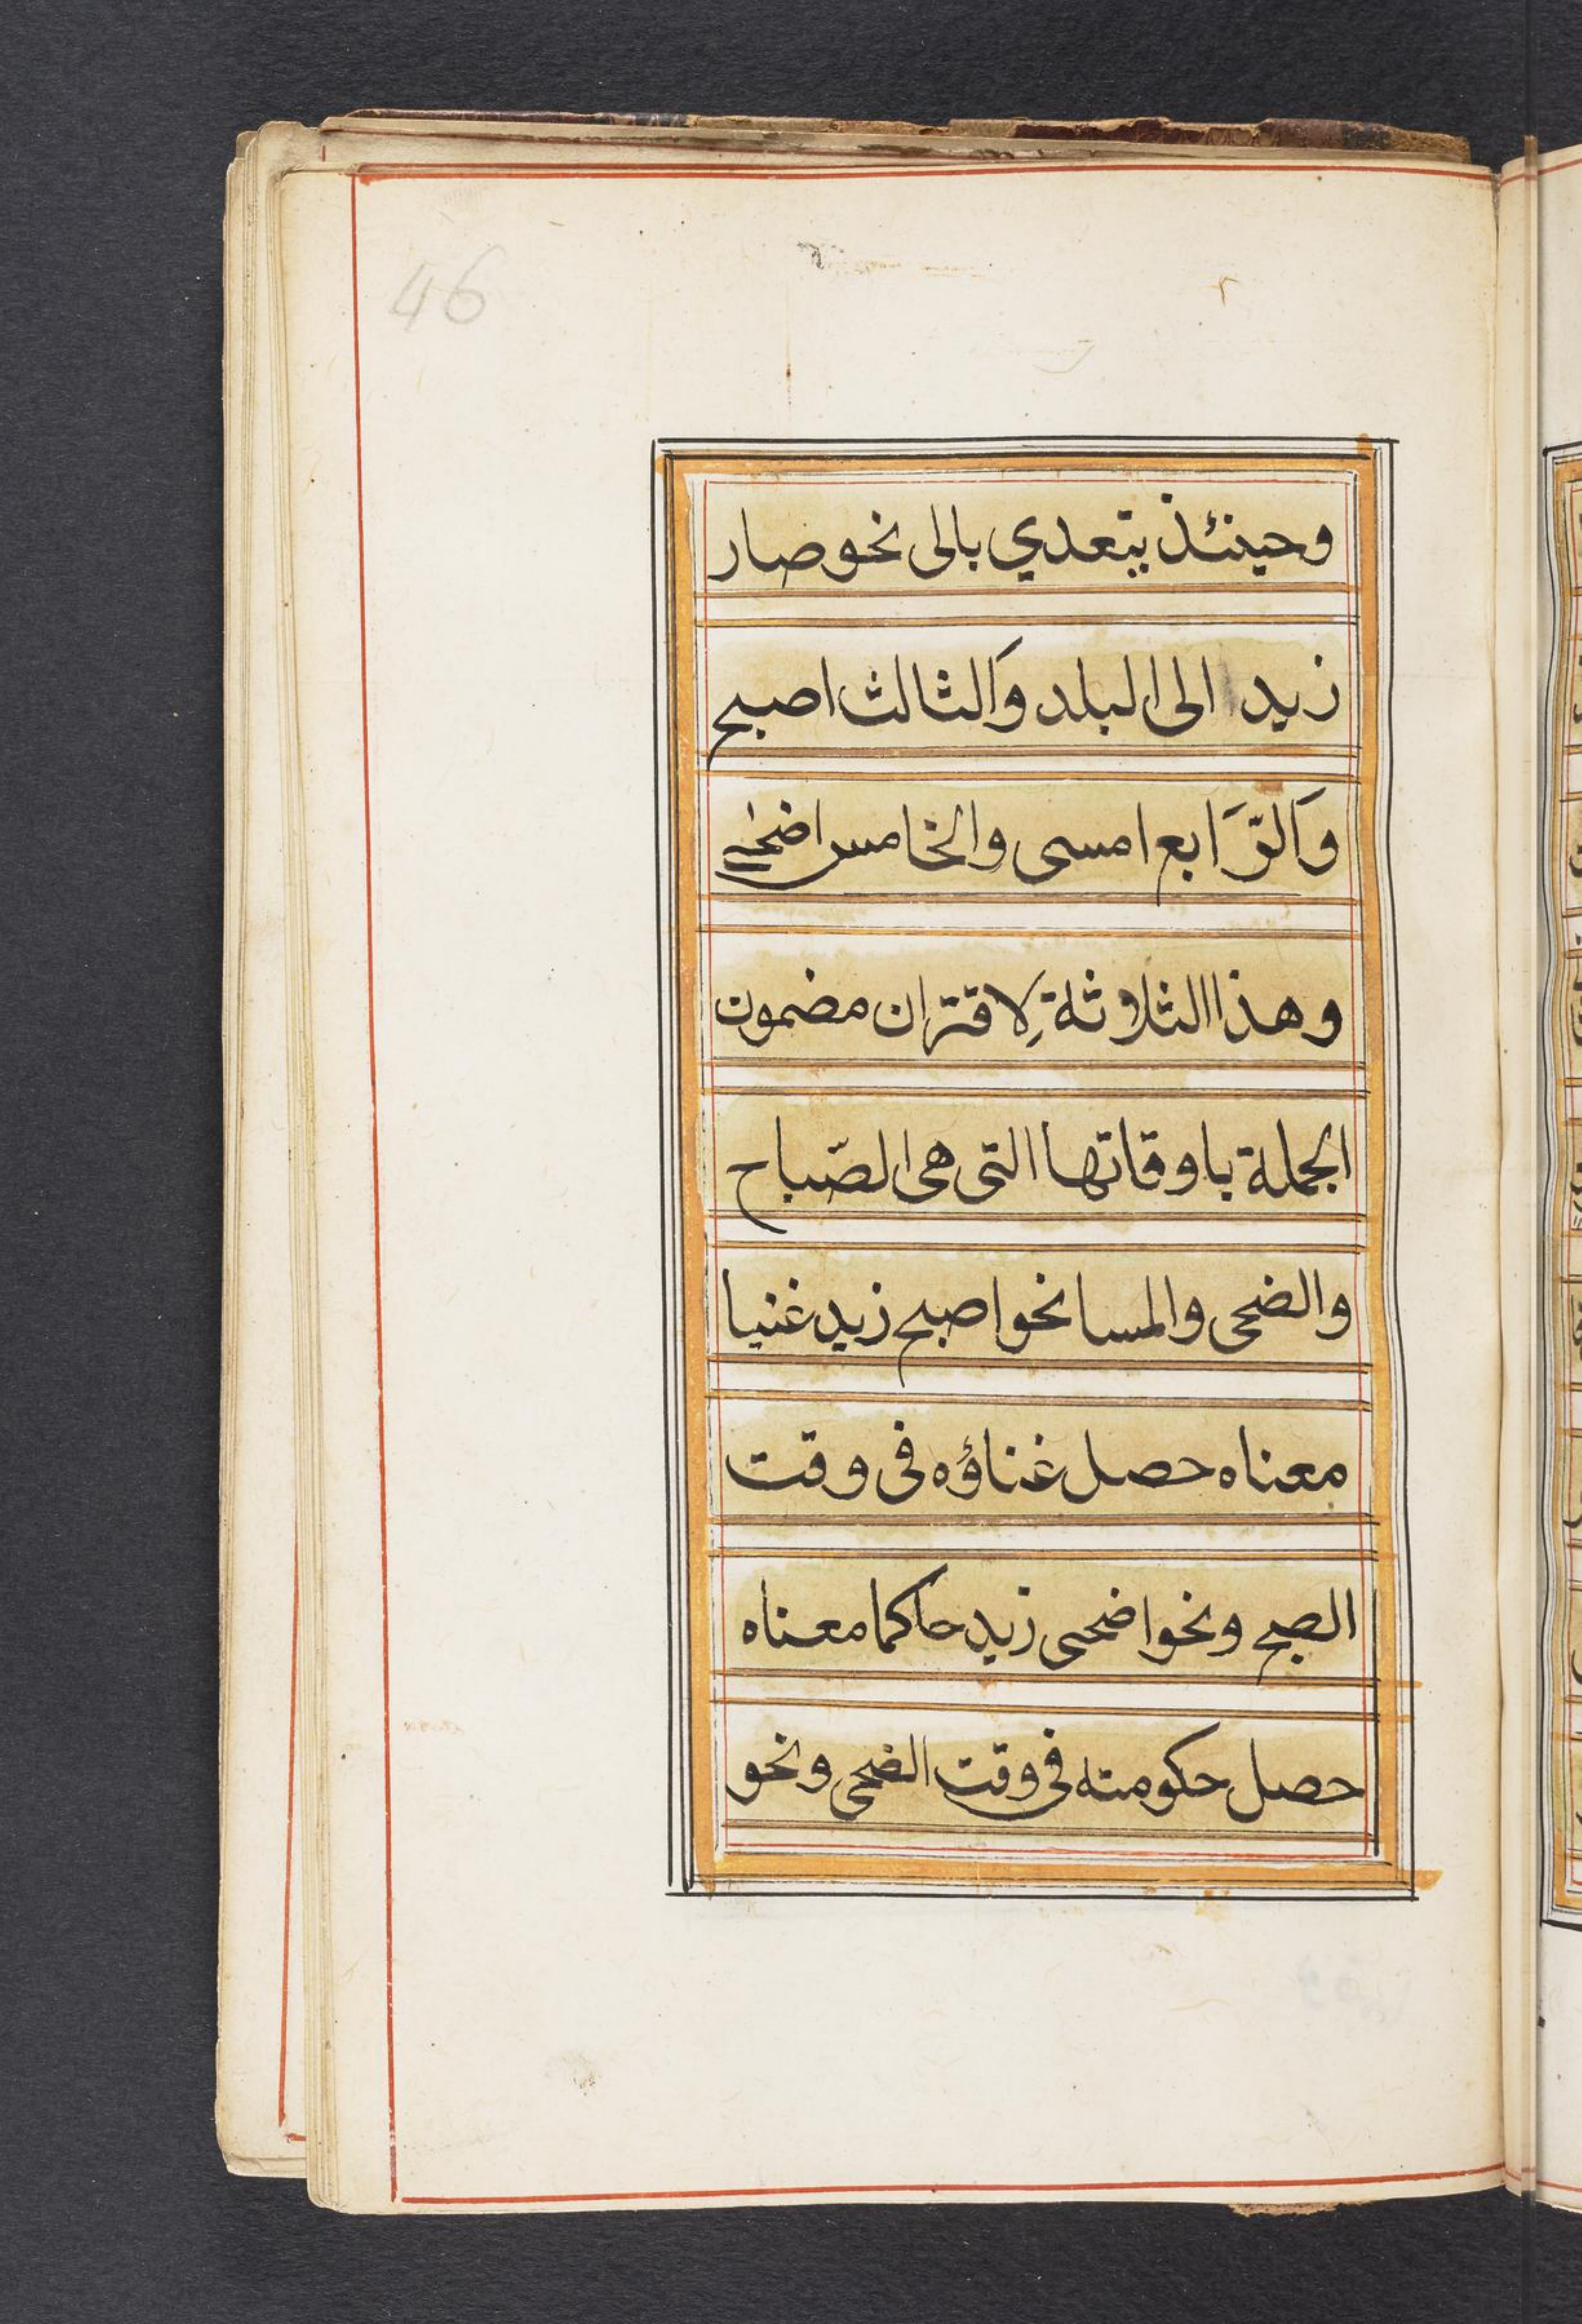 46
وحينئذ يتعدي بالى نحو صار
زيد الى البلد وَالثالث اصبح
وَالرَّابع امسى والخامس اضحى
وهذا الثلاثة لِاقتران مضمون
الجملة باوقاتها التى هى الصّباح
والضحى والمسا نحو اصبح زيد غنيا
معناه حصل غناؤه فى وقت
الصبح ونحو اضحى زيد حاكما معناه
حصل حكومته فى وقت الضحى ونحو